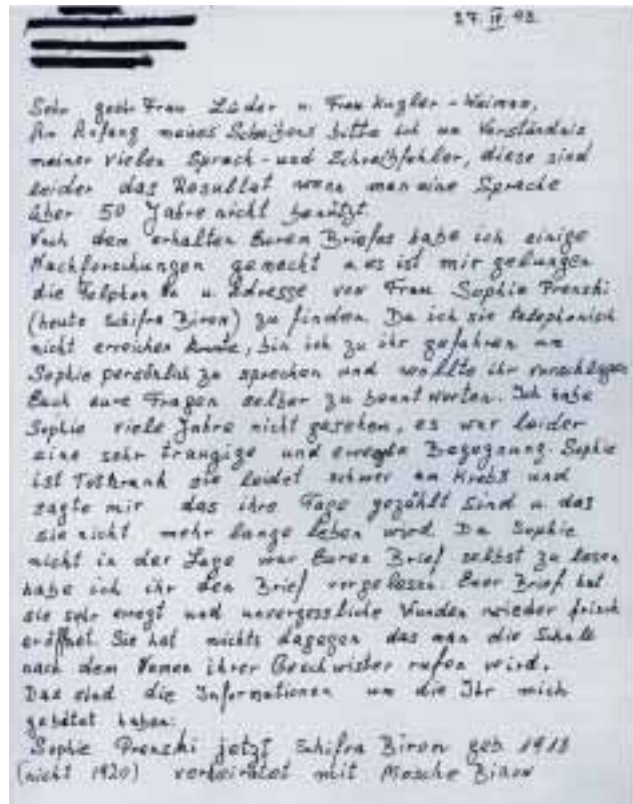 27. IV. 93.
Sehr geehr Frau Lüder u. Frau Kugler-Weiman,
Am Anfang meines Schreibens bitte ich um Verständnis
meiner vielen Sprach- und Schreibfehler, diese sind
leider das Resultat wenn man eine Sprache
über 50 Jahre nicht benützt.
Nach dem erhalten Euren Briefes habe ich einige
Nachforschungen gemacht u es ist mir gelungen
die Telphon No u. Adresse von Frau Sophie Prenski
(heute Schifra Biron) zu finden. Da ich sie telephonisch
nicht erreichen konnte, bin ich zu ihr gefahren um
Sophie persönlich zu sprechen und wollte ihr vorschlagen
Euch eure Fragen selber zu beantworten. Ich habe
Sophie viele Jahre nicht gesehen, es war leider
eine sehr traurige und erregte Begegnung. Sophie
ist Totkrank sie leidet schwer am Krebs und
sagte mir das ihre Tage gezählt sind u. das
sie nicht mehr lange leben wird. Da Sophie
nicht in der Lage war Euren Brief selbst zu lesen
habe ich ihr den Brief vorgelesen. Euer Brief hat
sie sehr erregt und unvergessliche Wunden wieder frisch
eröffnet. Sie hat nichts dagegen das man die Schule
nach dem Namen ihrer Geschwister rufen wird.
Das sind die Informationen um die Ihr mich
gebätet haben:
Sophie Prenski jetzt Schifra Biron geb. 1918
(nicht 1920) verheiratet mit Mosche Biron